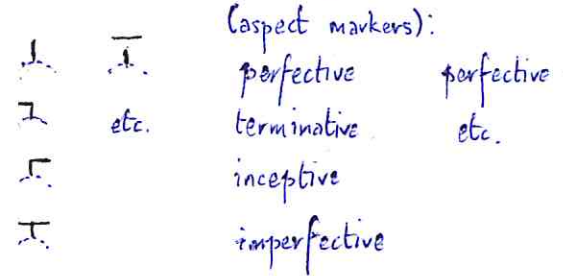 (aspect markers):
perfective perfective
etc. terminative etc.
inceptive
imperfective